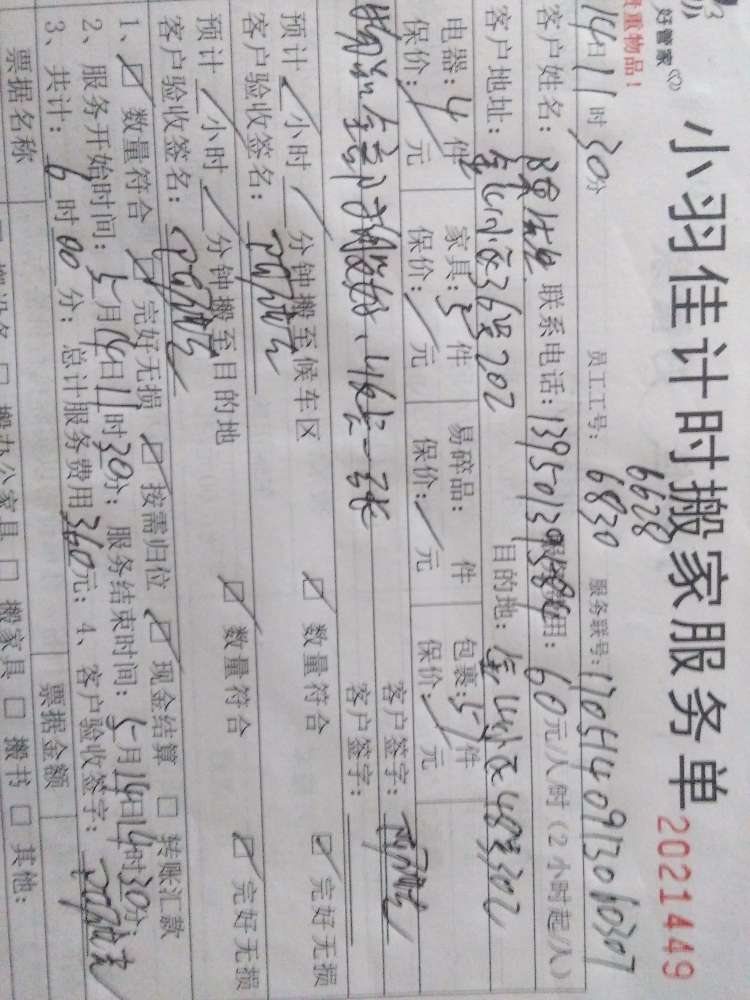 小羽佳计时搬家服务单 2021449
好管家
贵重物品！
14日11时30分 员工工号：6628 6830 服务联号：
客户姓名： 联系电话：13950139586 服务费用：60元/人时（2小时起/人）
客户地址：金山小区36号202 目的地：金山小区48号302
电器：4件 家具：5件 易碎品： 件 包裹：57件
保价： 元 保价： 元 保价： 元 保价： 元
客户签字：
客户签字：
预计 小时 分钟搬至候车区 ☑ 数量符合 ☑ 完好无损
客户验收签名：
预计 小时 分钟搬至目的地 ☑ 数量符合 ☑ 完好无损
客户验收签名：
1、☑ 数量符合 ☑ 完好无损 ☑ 按需归位 ☑ 现金结算 □ 转账汇款
2、服务开始时间：5月14日11时30分；服务结束时间：5月14日14时30分；
3、共计：6时00分；总计服务费用360元；4、客户验收签字：
票据名称 票据金额
□ 搬办公家具 □ 搬家具 □ 搬书 □ 其他：